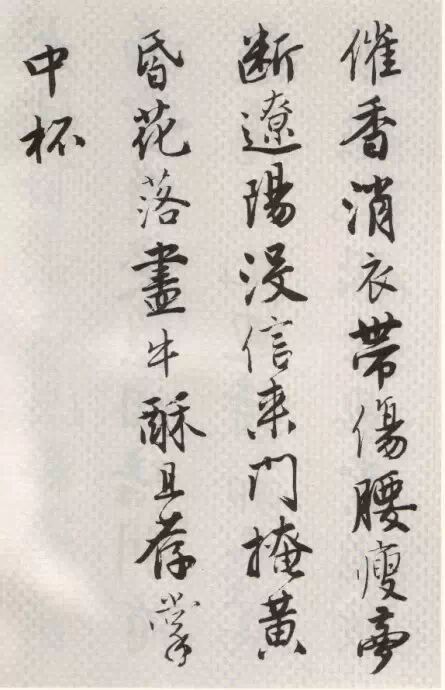 催香消衣帶傷腰瘦夢
断遼陽没信来門掩黄
昏花落盡牛酥且荐掌
中杯